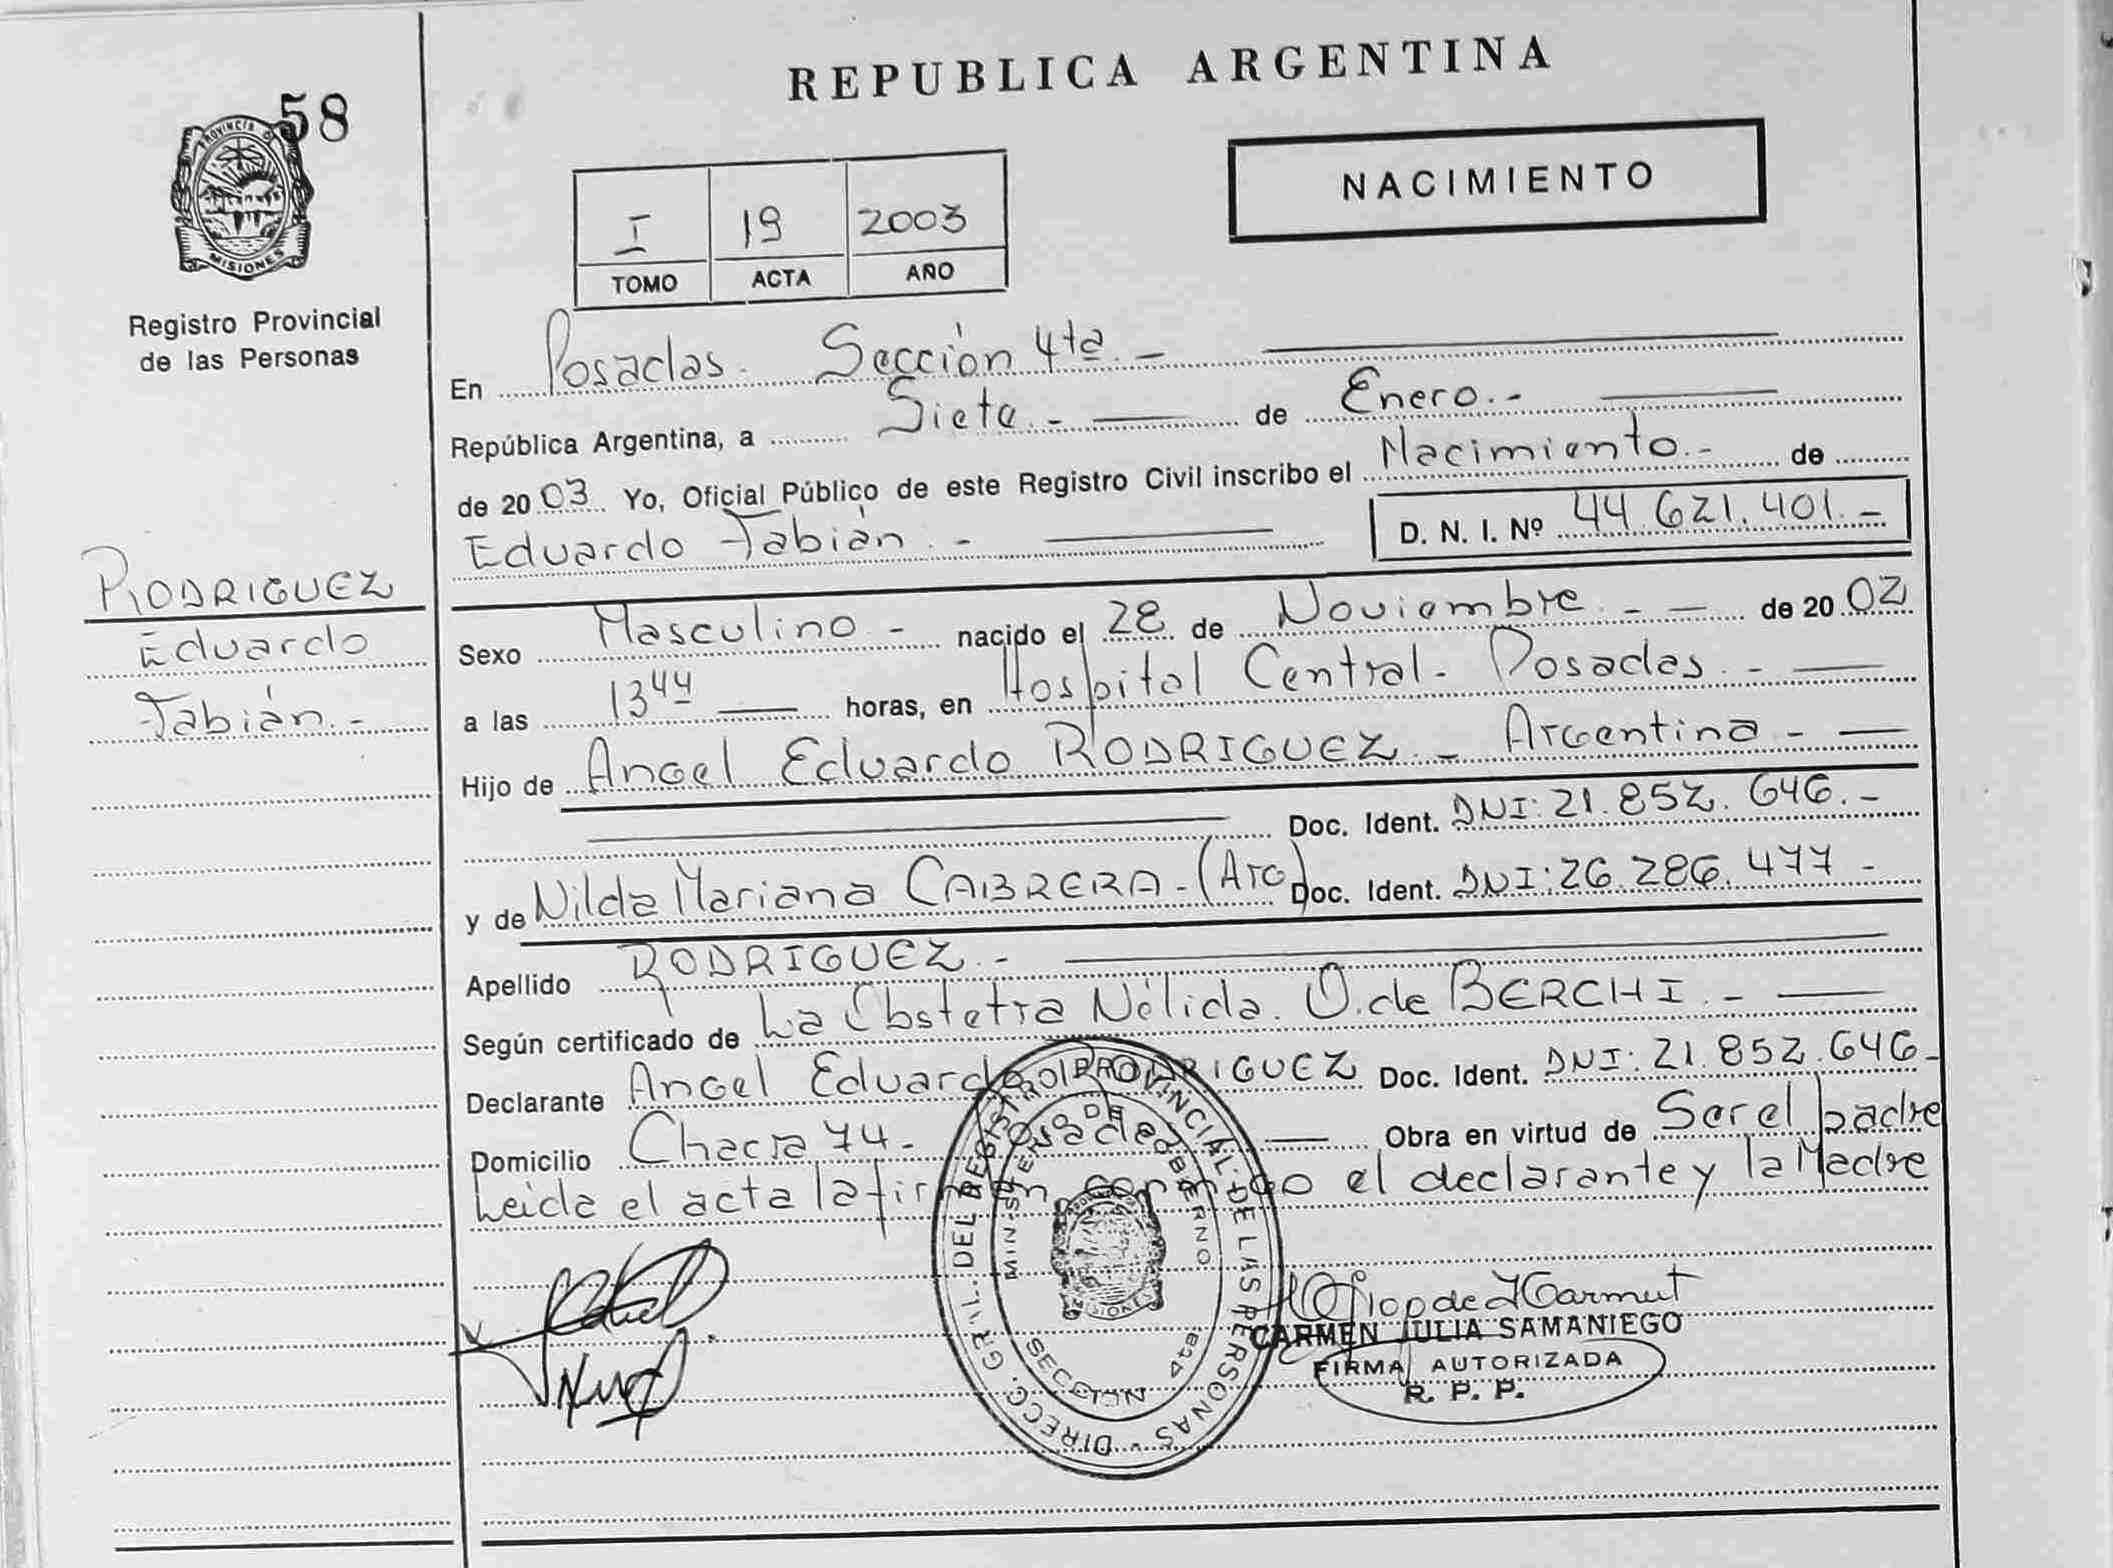 58
PROVINCIA DE
MISIONES
Registro Provincial
de las Personas
RODRIGUEZ
Eduardo
Fabián.-
REPUBLICA ARGENTINA
NACIMIENTO
I 19 2003
TOMO ACTA AÑO
En Posadas. Sección 4ta.-
República Argentina, a Siete.- de Enero.-
de 2003 Yo, Oficial Público de este Registro Civil inscribo el Nacimiento.- de
Eduardo Fabián.- D. N. I. Nº 44.621.401.-
Sexo Masculino - nacido el 28 de Noviembre.- - de 2002
a las 13 44 horas, en Hospital Central- Posadas.-
Hijo de Angel Eduardo RODRIGUEZ - Argentina -
Doc. Ident. DNI: 21.852.646.-
y de Nilda Mariana CABRERA-(Arg) Doc. Ident. DNI: 26.286.477-
Apellido RODRIGUEZ.-
Según certificado de La Obstetra Nélida. O. de BERCHI.-
Declarante Angel Eduardo RODRIGUEZ Doc. Ident. DNI: 21.852.646-
Domicilio Chacra 74- Posadas Obra en virtud de Ser el padre
Leida el acta la firman conmigo el declarante y la Madre
DIRECC. GRAL. DEL REGISTRO PROVINCIAL DE LAS PERSONAS
MINISTERIO DE GOBIERNO
MISIONES
SECCION 4ta
CARMEN JULIA SAMANIEGO
FIRMA AUTORIZADA
R. P. P.